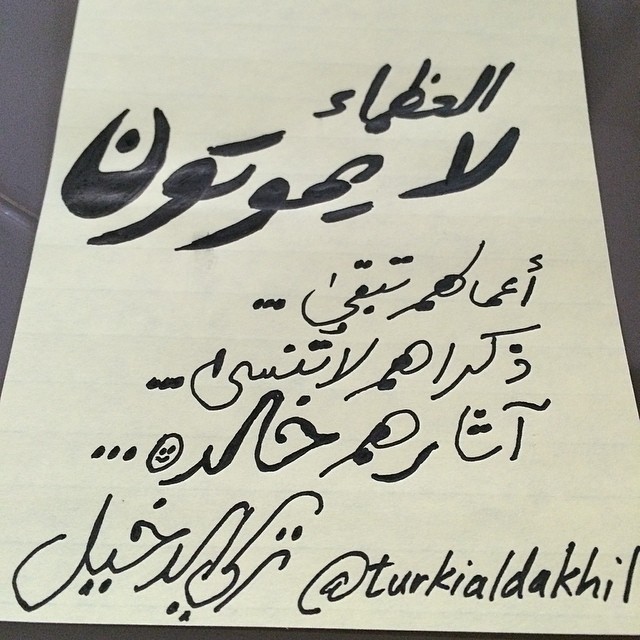 العظماء
لا يموتون
أعمالهم تبقى ...
ذكراهم لا تُنسى ...
آثارهم خالدة ...
تركي الدخيل @turkialdakhil